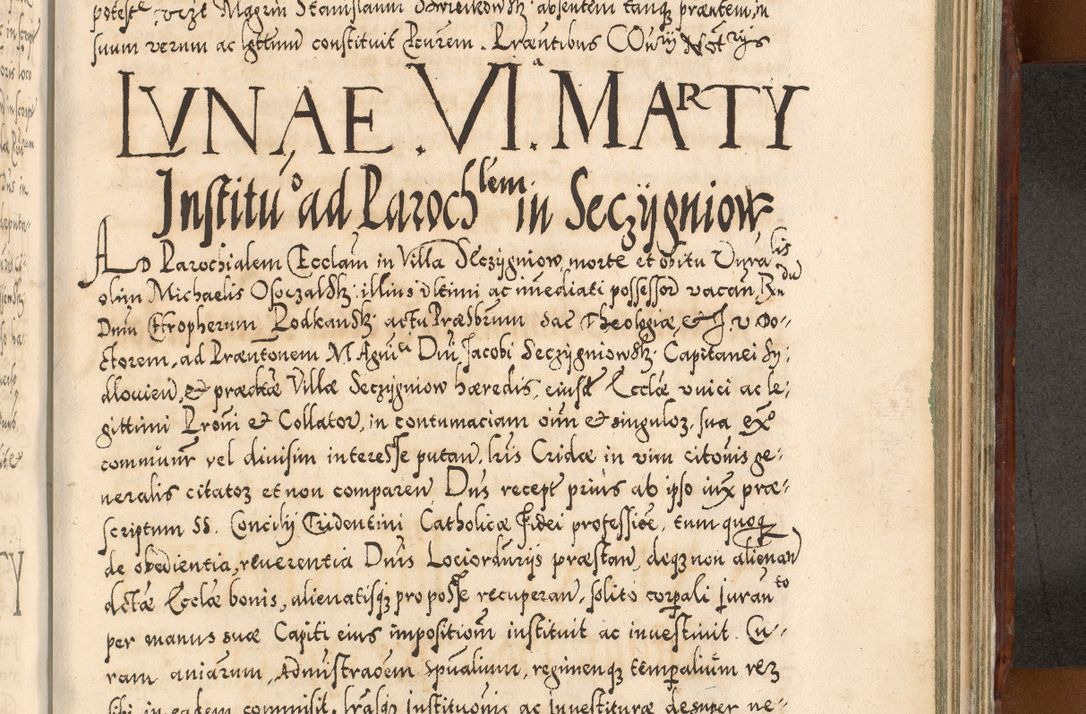 potest vrze Magrm Stanislaum Swiecikowsk absentem tanq præntem, in
suum verum ac lgttmu constituit Pcurem. Præntibus COurij Notrijs
LVNAE . VIa. MARTY
Institúo ad Parochlem in Seczÿgniow
AD Parochialem Ecclam in Villa Seczÿgniow, morte et obitu Dnralis
olim Michaelis Osoczalsk: illius vltimi ac immediati possessor vacan Rndu
Dnm Chropherum Podkansk: actu Præsbrum sac Theologiæ, & J. v Do-
ctorem, ad Præntonem M. Agnici Dni Jacobi Seczÿgniowsk: Capitanei Sy-
dlovien, & prædtæ Villæ Seczÿgniow hæredis, eiusd Ecclæ vnici ac le-
gittimi Proni et Collator, in contumaciam oim et singuloz. sua exo
commuur vel diuisim interesse putan, lris Cridæ in vim citonis ge-
neralis citatoz et non comparen, Dns recept prius ab ipso iux præ-
scriptum SS. Concilij Tridentini Catholicæ Fidei professioe, tum quoq
de obedientia, reuerentia Dnis Lociordurijs præstan, deqz non alienan
dctæ Ecclæ bonis, alienatisqz pro posse recuperan, solito corpali juranto
per manus suæ Capiti eius impositiom instituit ac inuestiuit. Cu-
ram aniarum, Admistraoem spualium, regimenqz tempalium rez
sibi in eadem commisit, lrasqz Institutionis ac Inuestituræ desuper ne-